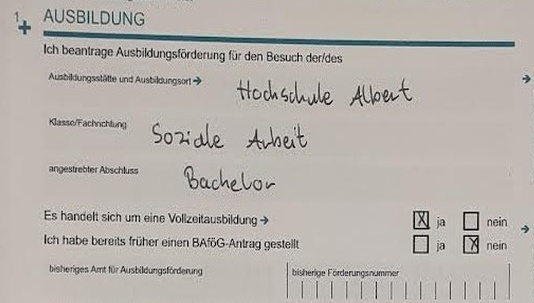 1 AUSBILDUNG
Ich beantrage Ausbildungsförderung für den Besuch der/des
Ausbildungsstätte und Ausbildungsort → Hochschule Albert
Klasse/Fachrichtung Soziale Arbeit
angestrebter Abschluss Bachelor
Es handelt sich um eine Vollzeitausbildung → ☒ ja ☐ nein
Ich habe bereits früher einen BAföG-Antrag gestellt ☐ ja ☒ nein
bisheriges Amt für Ausbildungsförderung bisherige Förderungsnummer